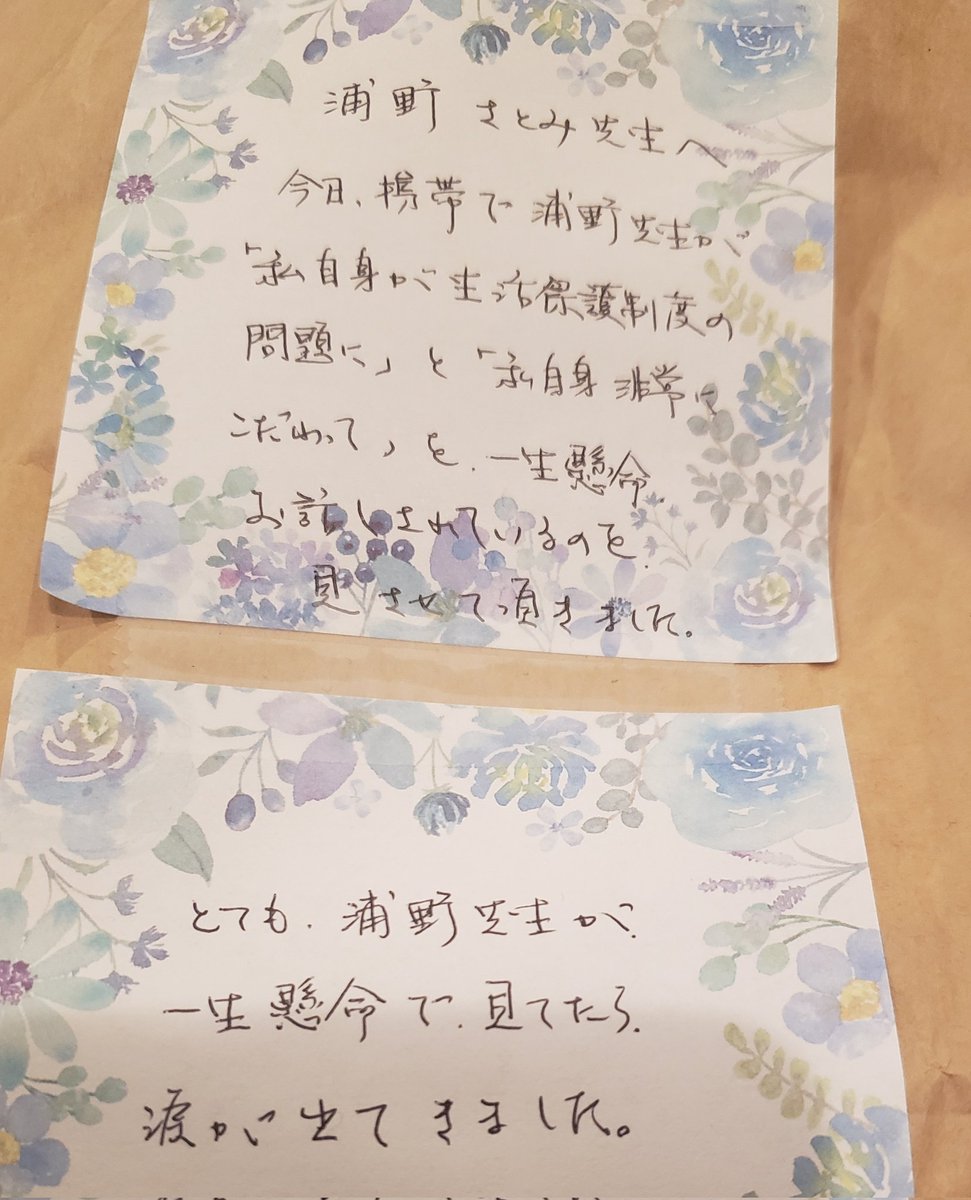 浦野 さとみ先生へ
今日、携帯で浦野先生が
「私自身が生活保護制度の
問題に」と「私自身非常に
こだわって」を、一生懸命、
お話しされているのを、
見させて頂きました。
とても、浦野先生が、
一生懸命で、見てたら、
涙が出てきました。